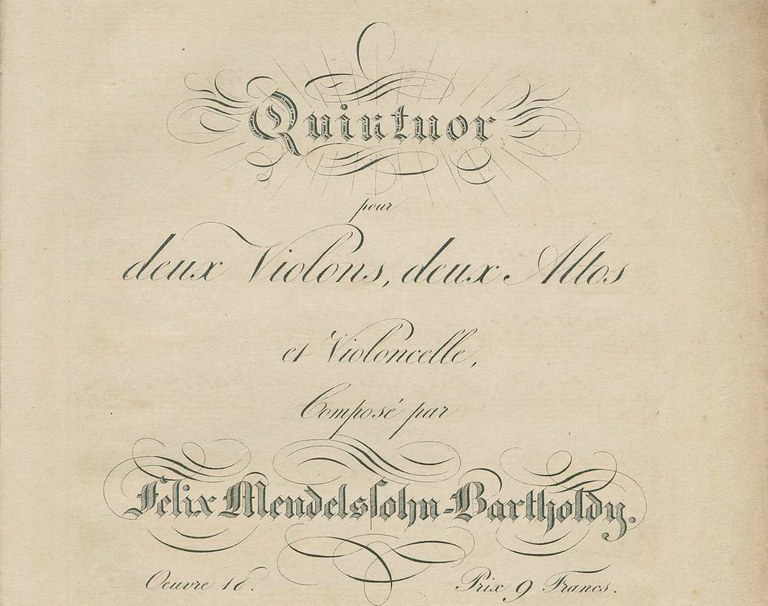 Quintuor
pour
deux Violons, deux Altos
et Violoncelle,
Composé par
Felix Mendelsſohn-Bartholdy.
Oeuvre 18. Prix 9 Francs.